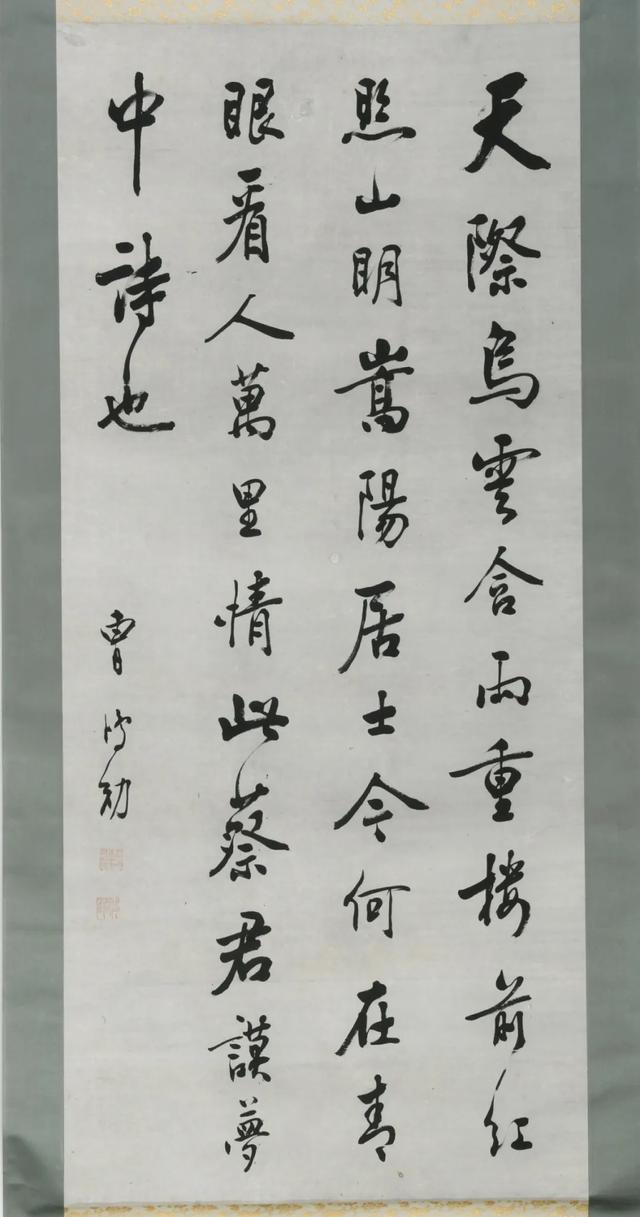 天際烏雲含雨重樓前紅
照山明嵩陽居士今何在青
眼看人萬里情此蔡君謨夢
中詩也
曹鴻勛